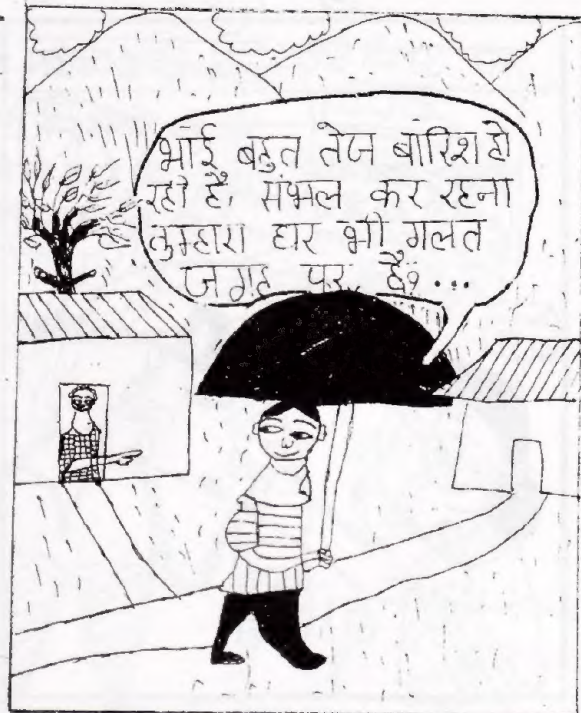 भाई बहुत तेज बारिश हो
रही है, संभल कर रहना
तुम्हारा हार भी गलत
जगह पर है? ...